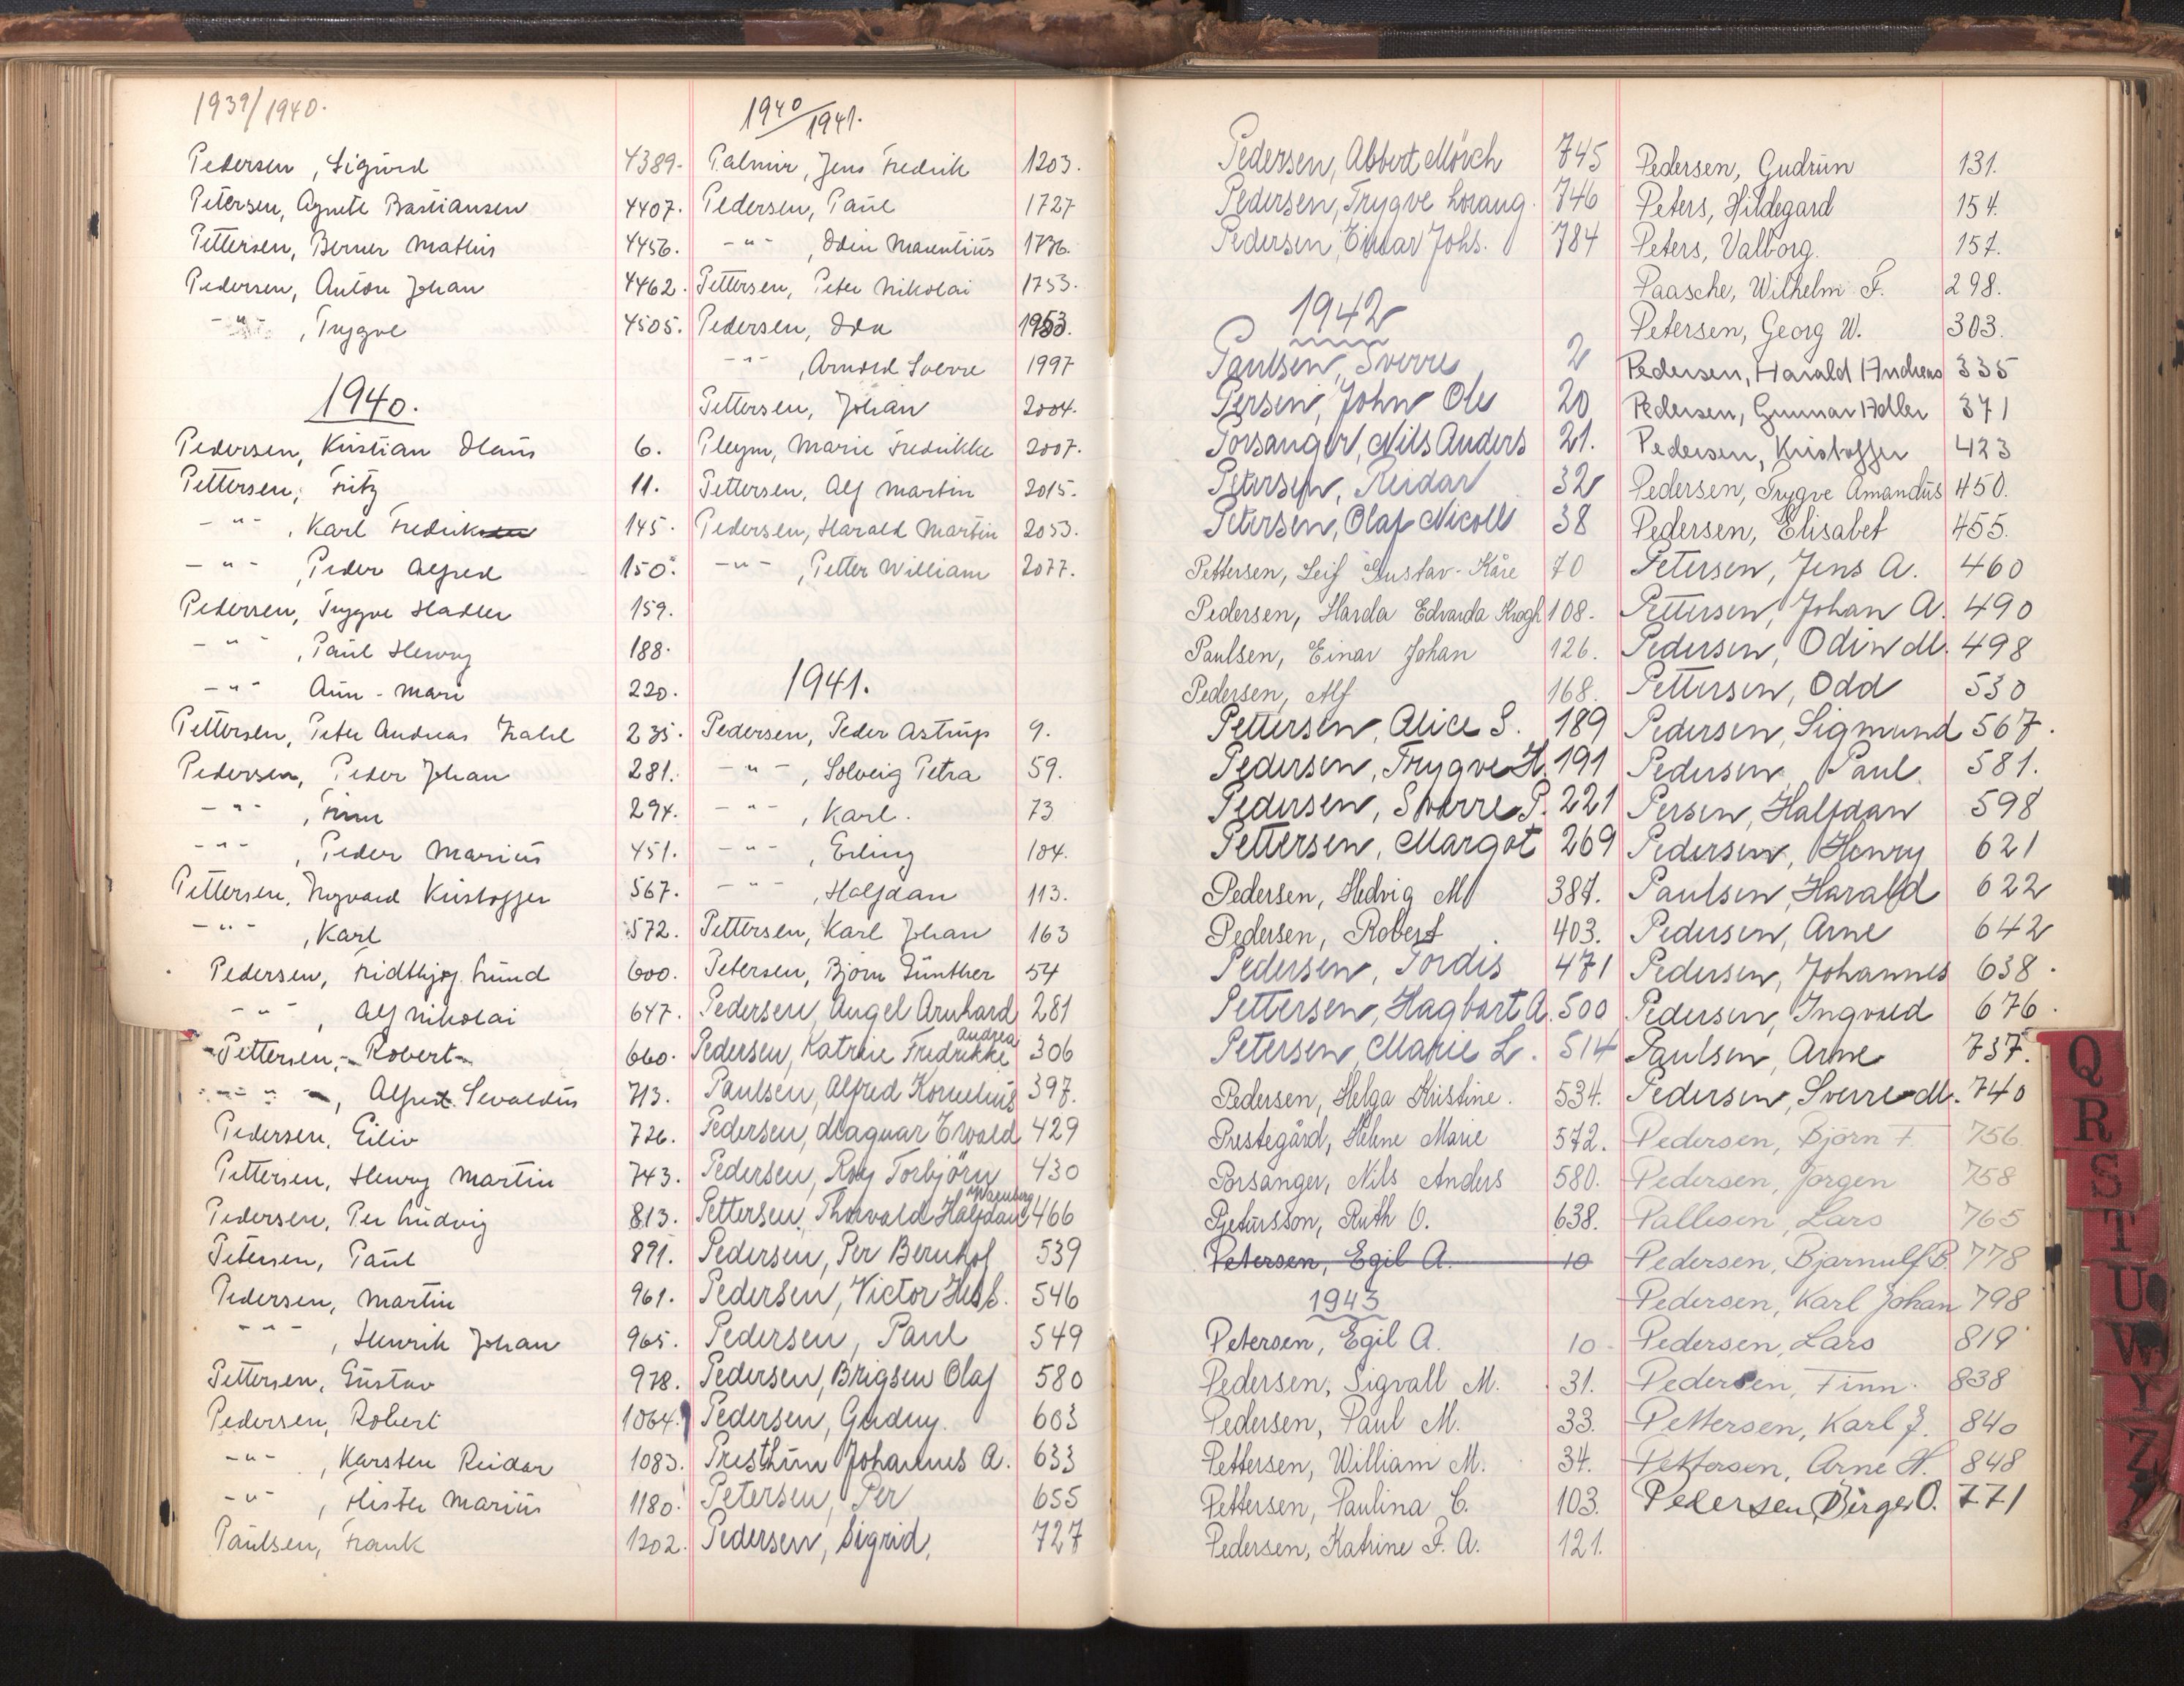 1939/1940.
Pedersen, Sigurd 4389.
Petersen, Agnete Bastiansen 4407.
Pettersen, Berner Mathis 4456.
Pedersen, Anton Johan 4462.
-"-, Trygve 4505.
1940.
Pedersen, Kristian Olaus 6.
Pettersen, Fritz 11.
-"-, Karl Fredriksen 145.
-"-, Peder Alfred 150.
Pedersen, Trygve Hadler 159.
-"-, Paul Henry 188.
-"- Ann-Mari 220.
Pettersen, Peter Andreas Zahl 235.
Pedersen, Peder Johan 281.
-"-, Finn 294.
-"-, Peder Marius 451.
Pettersen, Ingvard Kristoffer 567.
-"-, Karl 572.
Pedersen, Fridthjof Lund 600.
-"-, Alf Nikolai 647.
Pettersen, Robert 660.
-"-, Alfred Sevaldus 713.
Pedersen, Eiliv 726.
Pettersen, Henry Martin 743.
Pedersen, Per Ludvig 813.
Petersen, Paul 891.
Pedersen, Martin 961.
-"-, Henrik Johan 965.
Pettersen, Gustav 978.
Pedersen, Robert 1064.
-"-, Karsten Reidar 1083.
-"-, Hister Marius 1180.
Paulsen, Frank 1202.
1940/1941.
Palmer, Jens Fredrik 1203.
Pedersen, Paul 1727
-"-, Odin Marentius 1736.
Pettersen, Peter Nikolai 1753.
Pedersen, Oda 1953.
-"-, Arnold Sverre 1997
Pettersen, Johan 2004.
Pleym, Marie Fredrikke 2007.
Pettersen, Alf Martin 2015.
Pedersen, Harald Martin 2053.
-"-, Petter William 2077.
1941.
Pedersen, Peder Astrup 9.
-"-, Solveig Petra 59.
-"-, Karl. 73
-"-, Erling 104.
-"-, Halfdan 113.
Pettersen, Karl Johan 163
Petersen, Bjørn Günther 54
Pedersen, Angel Arnhard 281
Andrea
Pedersen, Katrine Fredrikke 306
Paulsen, Alfred Kornelius 397.
Pedersen, Ragnar Ewald 429
Pedersen, Roy Torbjörn 430
Pettersen, Thorvald Halfdan 466
Pedersen, Per Bernhof 539
Pedersen, Victor Hess. 546
Pedersen, Paul 549
Pedersen, Brigsen Olaf 580
Pedersen, Gudny. 603
Presthun Johannes A. 633
Petersen, Per 655
Pedersen, Sigrid, 727
Pedersen, Abbert Mörch 745
Pedersen, Trygve Lorang. 746
Pedersen, Einar Johs. 784
1942
Paulsen, Sverre 2
Persen, John Ole 20
Porsanger, Nils Anders 21.
Petersen, Reidar 32
Petersen, Olaf Nicoll 38
Pettersen, Leif Gustav-Kåre 70
Pedersen, Harda Edvarda Krogh 108.
Paulsen, Einar Johan 126.
Pedersen, Alf 168.
Pettersen, Alice S. 189
Pedersen, Trygve H. 191
Pedersen, Sverre P. 221
Pettersen, Margot 269
Pedersen, Hedvig M 387.
Pedersen, Robert 403.
Pedersen, Tordis 471
Pettersen, Hagbart A. 500
Petersen, Marie L. 514
Pedersen, Helga Kristine. 534.
Prestegård, Helene Marie 572.
Porsanger, Nils Anders 580.
Pjetursson, Ruth O. 638.
Petersen, Egil A. 10
1943
Petersen, Egil A. 10
Pedersen, Sigvall M. 31.
Pedersen, Paul M. 33.
Pettersen, William M. 34.
Pettersen, Paulina C. 103.
Pedersen, Katrine F. A. 121.
Pedersen, Gudrun 131.
Peters, Hildegard 154.
Peters, Valborg. 157.
Paasche, Wilhelm F. 298.
Petersen, Georg W. 303.
Pedersen, Harald Andreas 335
Pedersen, Gunnar Adler 371
Pedersen, Kristoffer 423
Pedersen, Trygve Amandus 450.
Pedersen, Elisabet 455.
Petersen, Jens A. 460
Pettersen, Johan A. 490
Pedersen, Odin M. 498
Pettersen, Odd 530
Pedersen, Sigmund 567.
Pedersen Paul. 581.
Persen, Halfdan 598
Pedersen, Henry 621
Paulsen, Harald 622
Pedersen, Arne 642
Pedersen, Johannes 638.
Pedersen, Ingvald 676.
Paulsen, Arne 737.
Pedersen, Sverre M. 740
Pedersen, Bjørn F. 756
Pedersen, Jørgen 758
Pallesen, Lars 765
Pedersen, Bjarnulf B. 778
Pedersen, Karl Johan 798
Pedersen, Lars 819
Pedersen, Finn. 838
Pettersen, Karl J. 840
Pettersen, Arne H. 848
Pedersen, Birger O. 771
Q
R
S
T
U
W
Y
Z